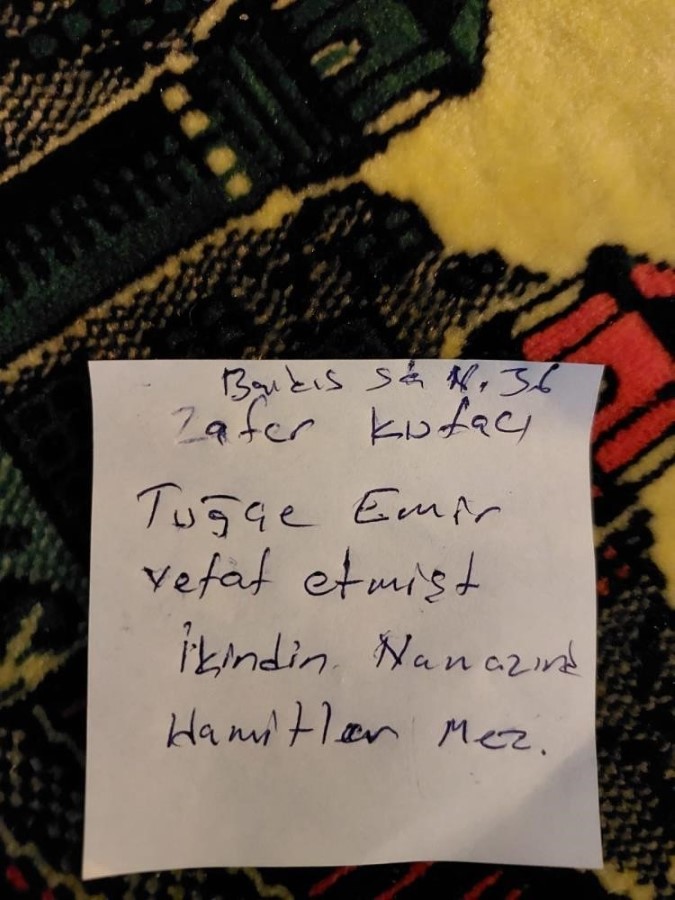 Balkıs Sk N. 36
Zafer kufacı
Tuğçe Emir
vefat etmişt
İkindin Namazına
Hamitler Mez.